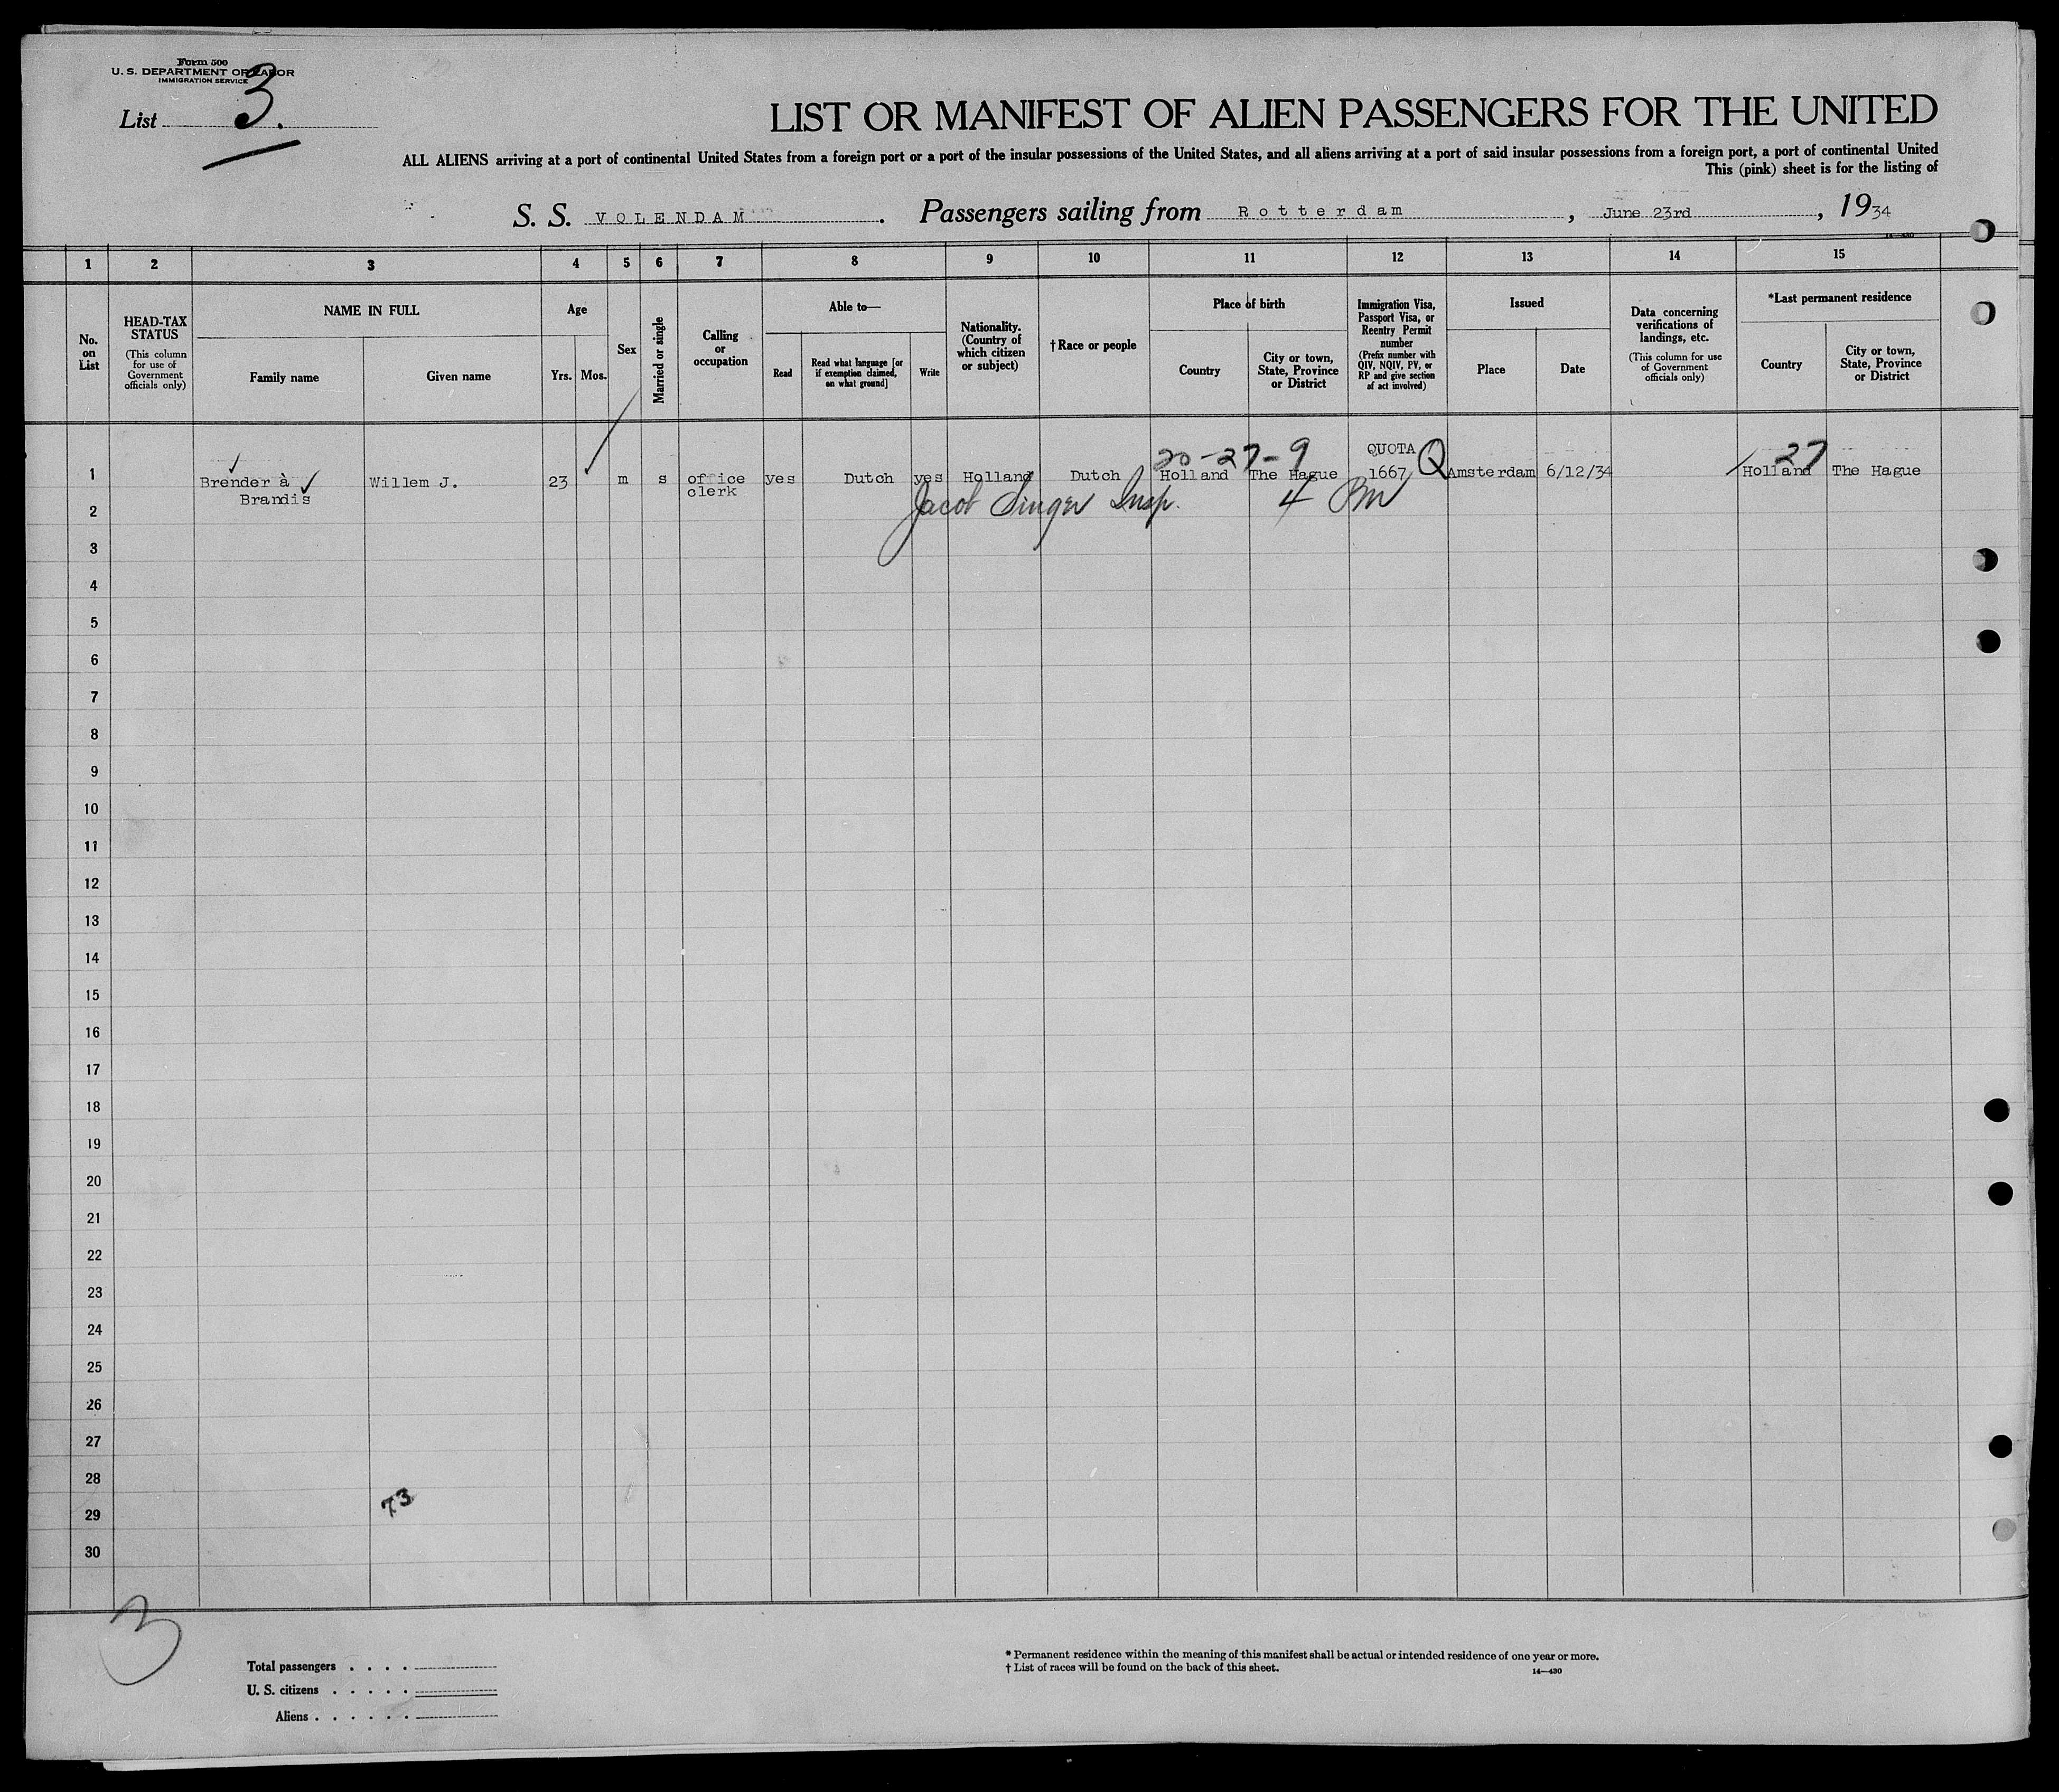 Form 500
U. S. DEPARTMENT OF LABOR
IMMIGRATION SERVICE
List 3.
LIST OR MANIFEST OF ALIEN PASSENGERS FOR THE UNITED
ALL ALIENS arriving at a port of continental United States from a foreign port or a port of the insular possessions of the United States, and all aliens arriving at a port of said insular possessions from a foreign port, a port of continental United
This (pink) sheet is for the listing of
S. S. VOLENDAM. Passengers sailing from Rotterdam, June 23rd, 1934
14—430
1 2 3 4 5 6 7 8 9 10 11 12 13 14 15
No. on List
HEAD-TAX STATUS
(This column for use of Government officials only)
NAME IN FULL
Family name
Given name
Age
Yrs.
Mos.
Sex
Married or single
Calling or occupation
Able to—
Read
Read what language [or if exemption claimed, on what ground]
Write
Nationality. (Country of which citizen or subject)
†Race or people
Place of birth
Country
City or town, State, Province or District
Immigration Visa, Passport Visa, or Reentry Permit number
(Prefix number with QIV, NQIV, PV, or RP and give section of act involved)
Issued
Place
Date
Data concerning verifications of landings, etc.
(This column for use of Government officials only)
*Last permanent residence
Country
City or town, State, Province or District
20-27-9 QUOTA Q 27
1 Brender à Willem J. 23 m s office yes Dutch yes Holland Dutch Holland The Hague 1667 Amsterdam 6/12/34 Holland The Hague
Brandis clerk
2 Jacob Singer Insp. 4 PM
3
4
5
6
7
8
9
10
11
12
13
14
15
16
17
18
19
20
21
22
23
24
25
26
27
28
29 73
30
3
Total passengers . . . .
U. S. citizens . . . . .
Aliens . . . . . .
* Permanent residence within the meaning of this manifest shall be actual or intended residence of one year or more.
† List of races will be found on the back of this sheet.
14—430